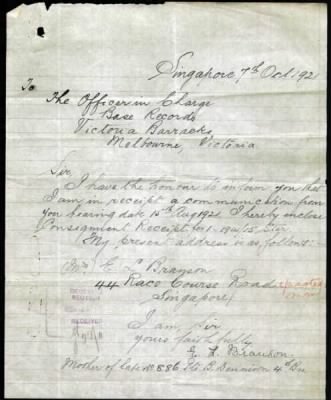 Singapore 7th Oct. 1921
To
The Officer in Charge
Base Records
Victoria Barracks
Melbourne, Victoria
Sir,
I have the honour to inform you that
I am in receipt a communication from
you bearing date 15th Aug 1921. I hereby enclose
Consignment Receipt for 1914/15 Star
My present address is as follows:-
Mrs E L Branson
44 Race Course Road
Singapore
I am, Sir
yours faithfully
E. L. Branson.
Mother of late No. 886 Pte B. Dennison 4th Bn
RECEIVED